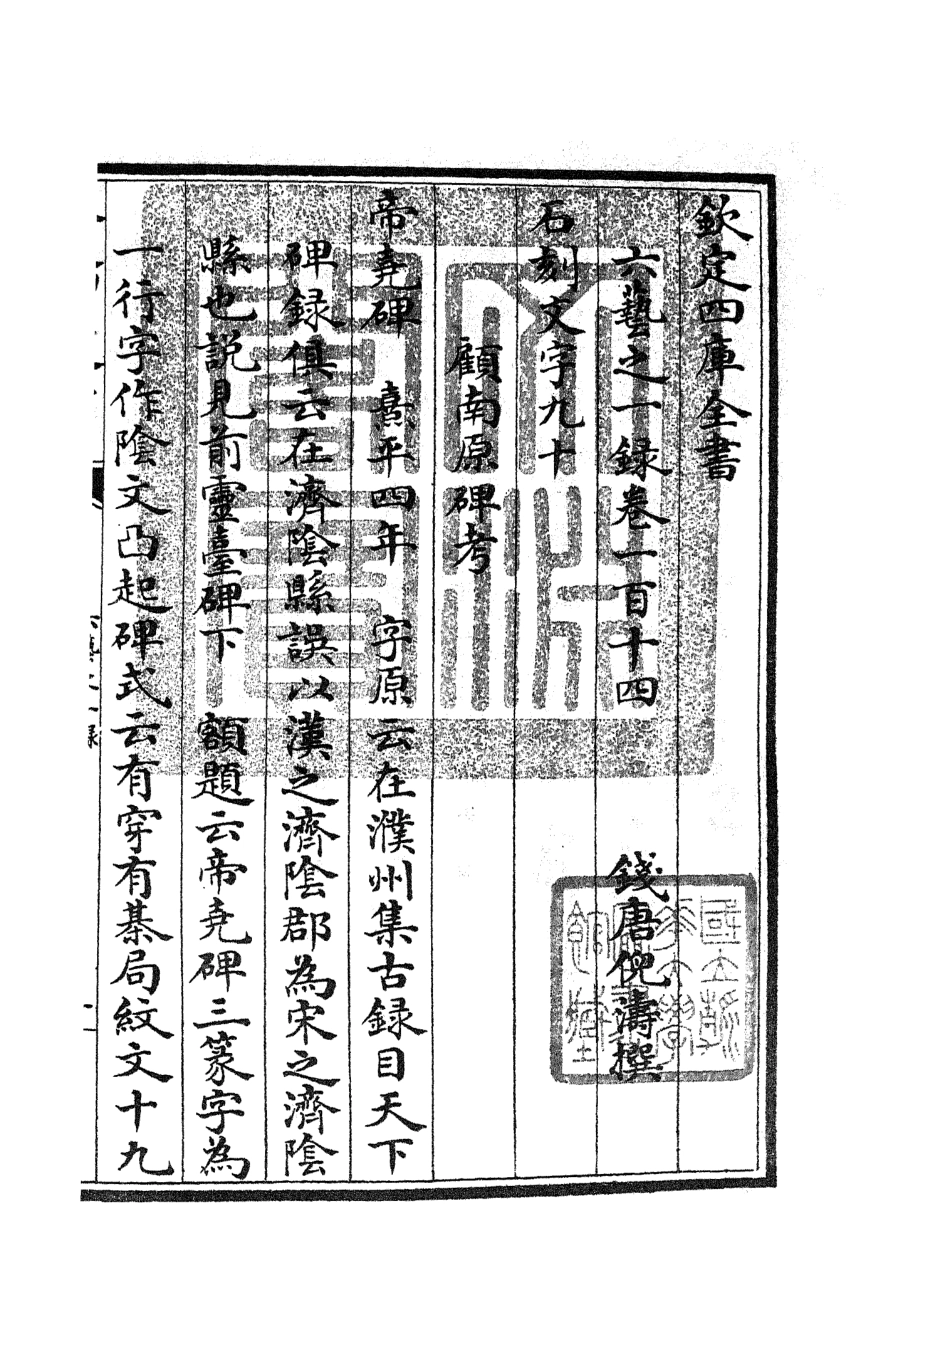 欽定四庫全書
六藝之一錄卷一百十四
錢唐倪濤撰
石刻文字九十
顧南原碑考
帝堯碑 熹平四年 字原云在濮州集古録目天下
碑録俱云在濟陰縣誤以漢之濟陰郡為宋之濟陰
縣也説見前靈臺碑下 額題云帝堯碑三篆字為
一行字作陰文凸起碑式云有穿有棊局紋文十九